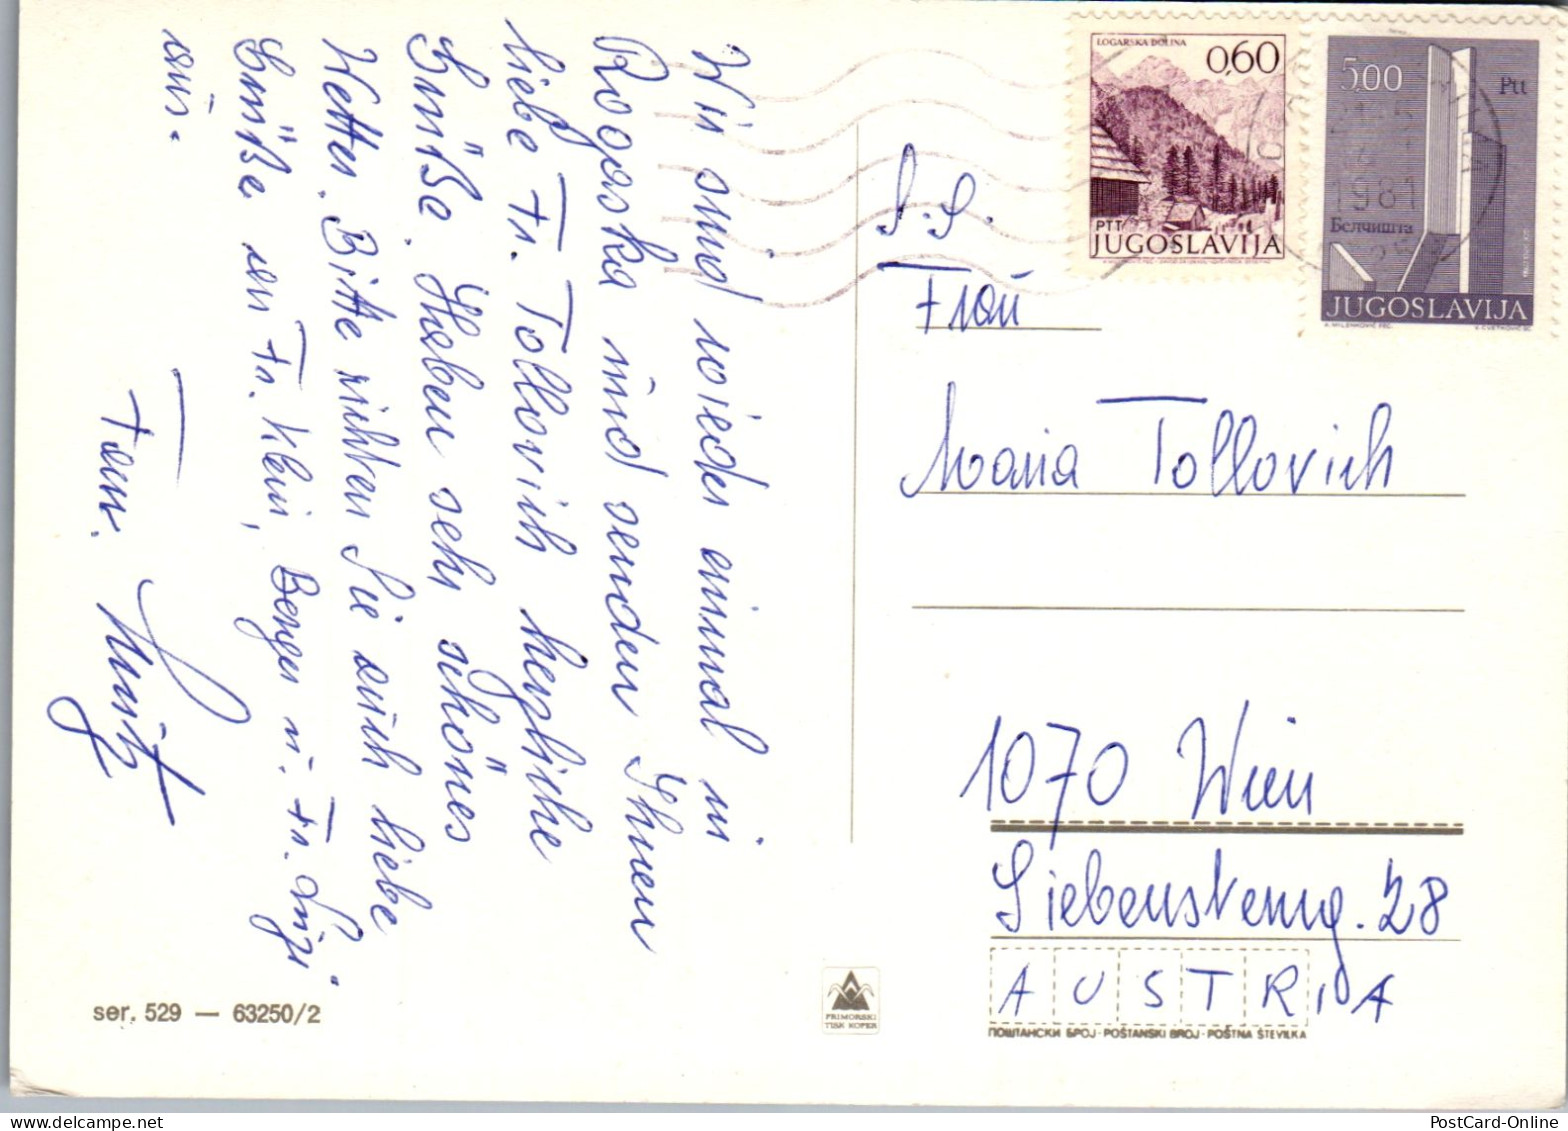 Wir sind wieder einmal in
Rogaska und senden Ihnen
liebe Fr. Tollovich herzliche
Grüße. Haben sehr schönes
Wetter. Bitte richten Sie auch liebe
Grüße an Fr. Klein, Berger u. Fr. Luzi
aus.
Fam.
LOGARSKA DOLINA
0,60
PTT
JUGOSLAVIJA
5,00
Ptt
1981
Белчишта
JUGOSLAVIJA
S.g.
Frau
Maria Tollovich
1070 Wien
Siebensterng. 28
AUSTRIA
ПОШТАНСКИ БРОЈ · POŠTANSKI BROJ · POŠTNA ŠTEVILKA
PRIMORSKI
TISK KOPER
ser. 529 — 63250/2
PostCard-Online